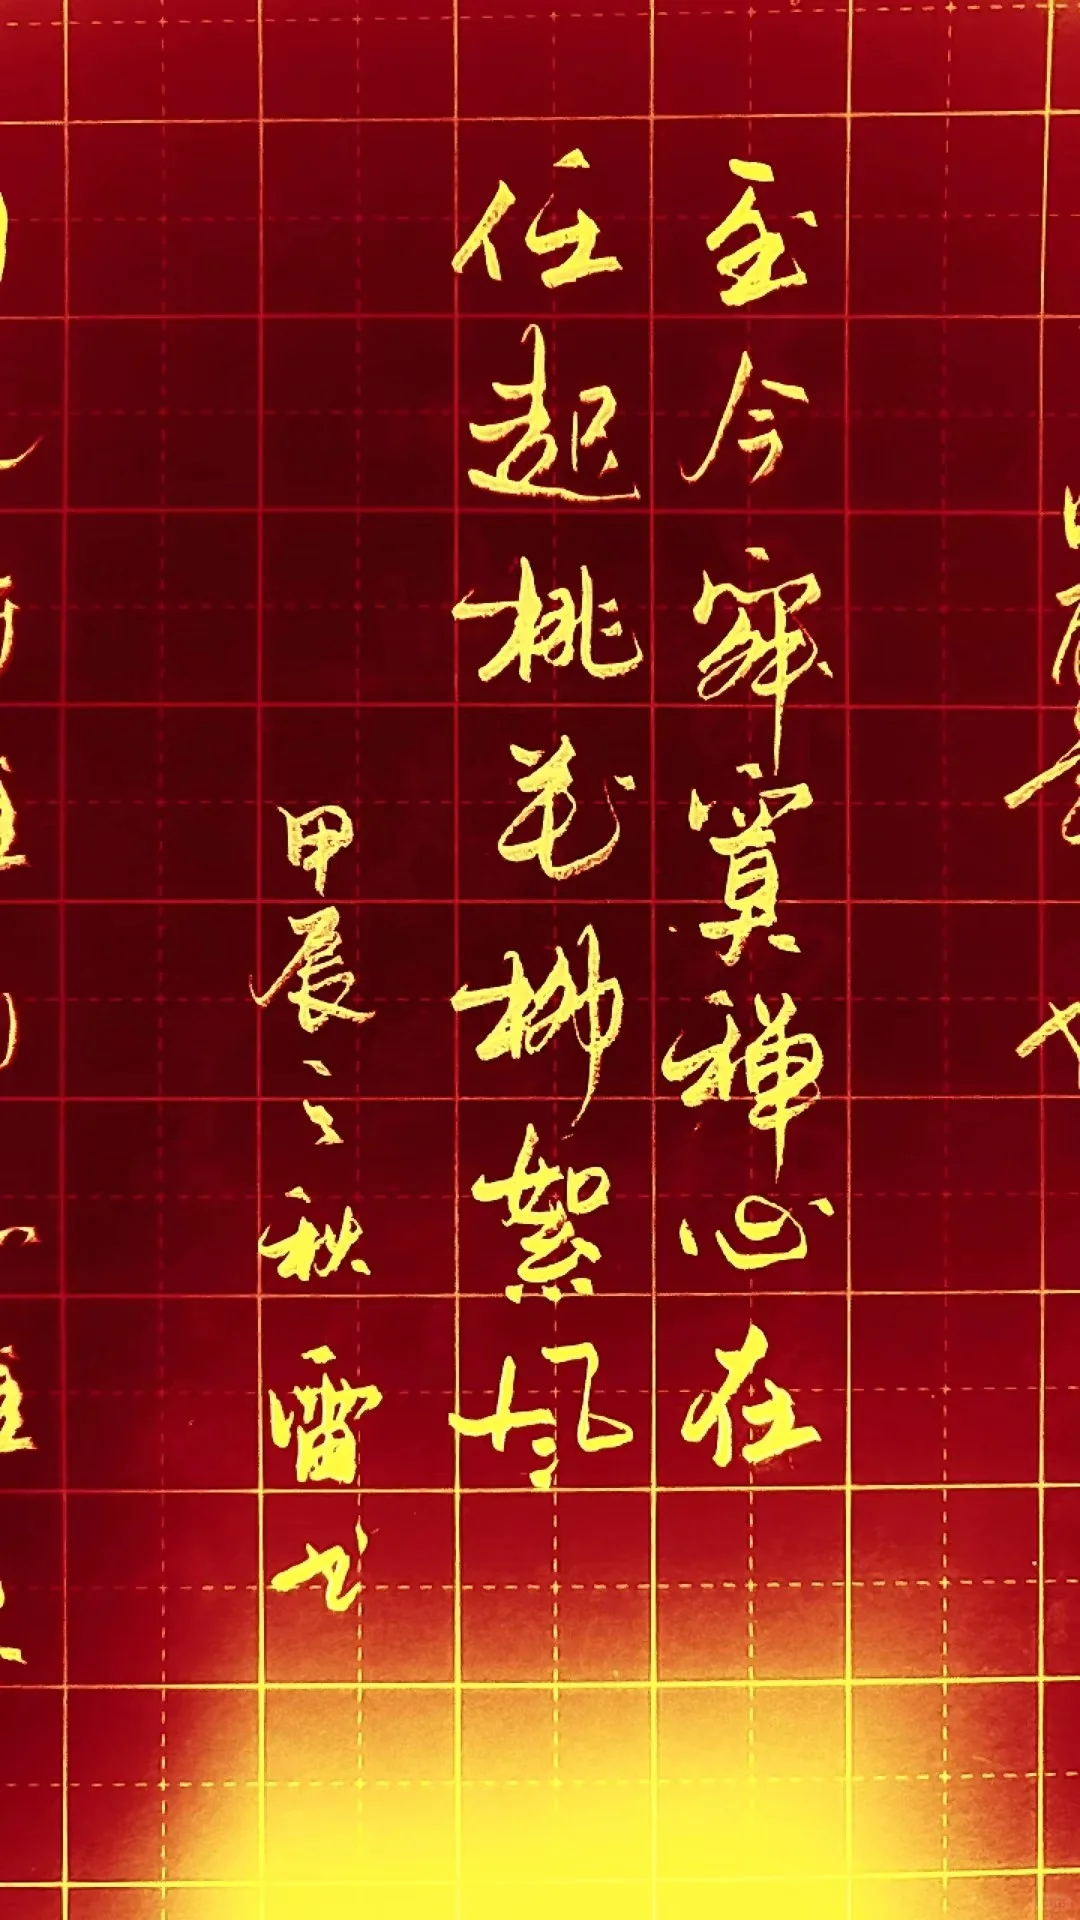 至今寂寞禪心在
任起桃花柳絮风
甲辰之秋雷书